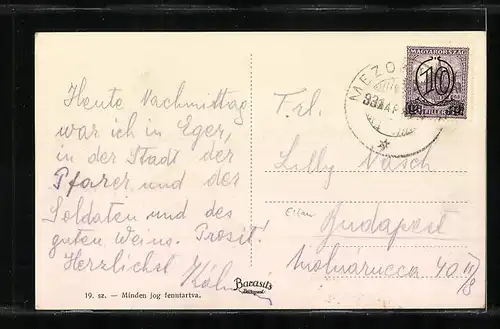 Heute Nachmittag
war ich in Eger,
in der Stadt der
Pfarer und der
Soldaten und des
guten Weins. Prosit!
Herzlichst
19. sz. — Minden jog fenntartva.
Barasits
Budapest
MAGYARORSZÁG
10
FILLÉR
MEZŐ
Lilly
Budapest
Molnárucca 40